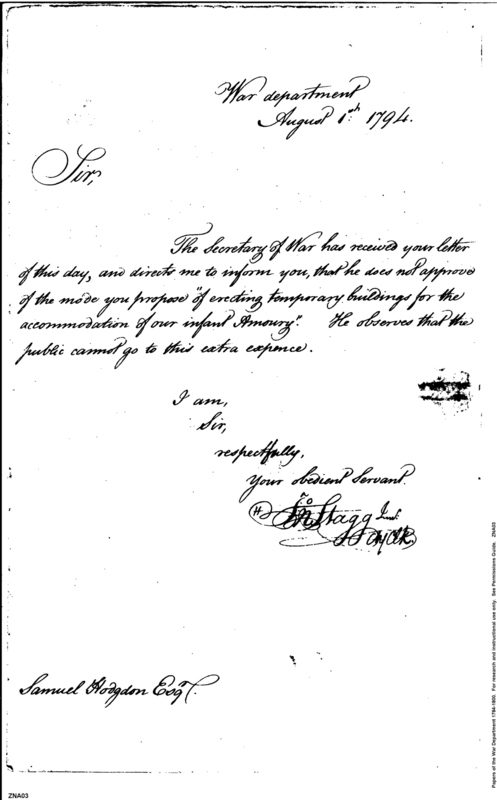 War department
August 1st 1794.
Sir,
The Secretary of War has received your letter
of this day, and directs me to inform you, that he does not approve
of the mode you propose "of erecting temporary buildings for the
accommodation of our infant Amoury". He observes that the
public cannot go to this extra expence.
I am,
Sir,
respectfully,
Your obedient Servant.
Jno Stagg Junr
Samuel Hodgdon Esqr.
Papers of the War Department 1784-1800. For research and instructional use only. See Permissions Guide. ZNA03
ZNA03